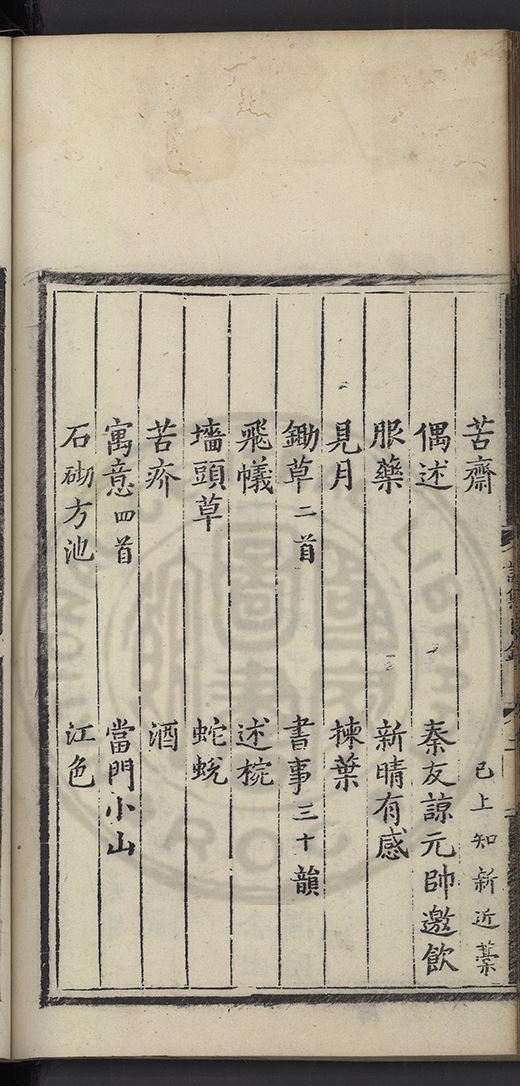 苦齋 已上知新近藁
偶述 秦友諒元帥邀飲
服藥 新晴有感
見月 揀葉
鋤草二首 書事三十韻
飛蟻 述椀
墻頭草 蛇蛻
苦疥 酒
寓意四首 當門小山
石砌方池 江色